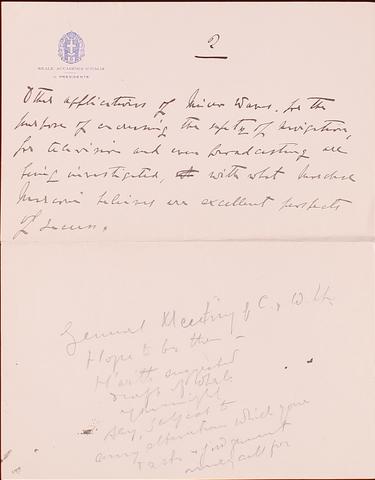 REALE ACCADEMIA D'ITALIA
IL PRESIDENTE
2
Other applications of Micro Waves, for the
purpose of encreasing the safety of navigation,
for television and even broadcasting are
being investigated, with what Marchese
Marconi believes are excellent prospects
of success.
General Meeting of C. & W. Ltd
Hope to be there
Herewith suggested
draft of what
you might
say, subject to
any alteration which your
taste & judgement
may call for